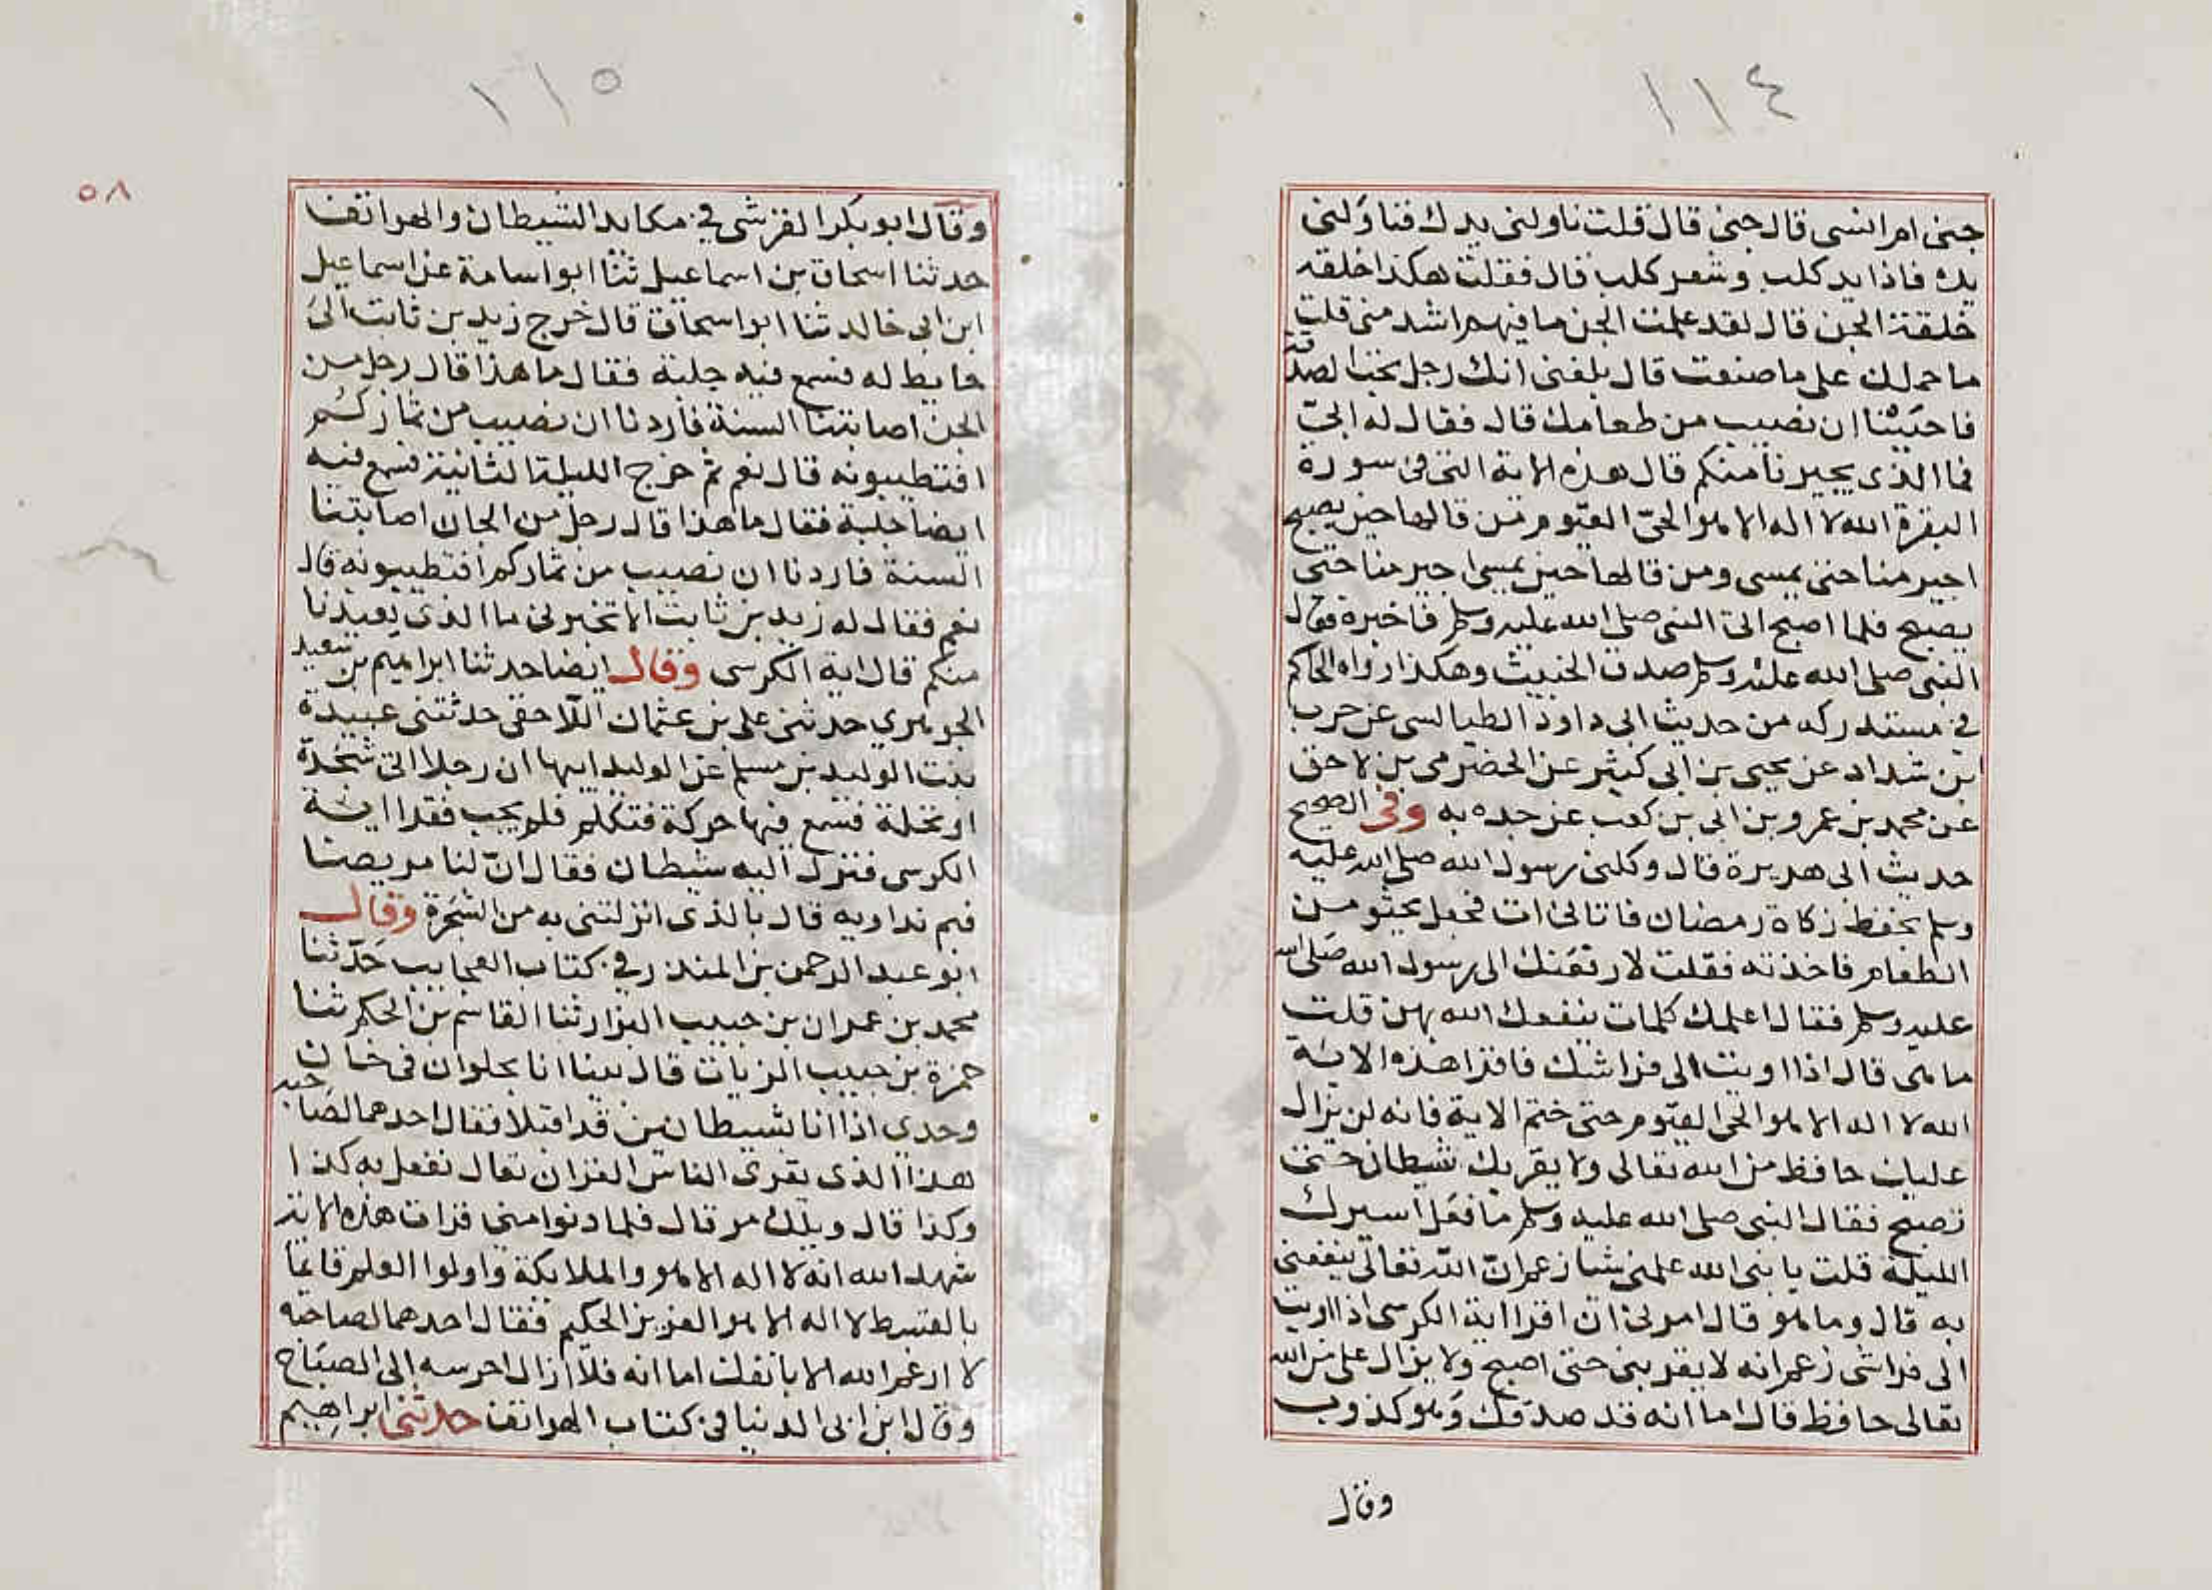 ١١٤
جنى ام انسى قال جنى قال قلت ناولنى يدك فناولنى
يده فاذا يد كلب وشعر كلب قال فقلت هكذا خلقه
خلقة الجن قال لقد علمت الجن ما فيهم اشد منى قلت
ما حملك على ما صنعت قال بلغنى انك رجل تحب الصدقة
فاحببنا ان نصيب من طعامك قال فقال له ابىّ
فما الذى يجيرنا منكم قال هذه الاية التى فى سورة
البقرة الله لا اله الا هو الحىّ القيّوم من قالها حين يصبح
اجير منا حتى يمسى ومن قالها حين يمسى اجير منا حتى
يصبح فلما اصبح اتى النبى صلى الله عليه وسلم فاخبره فقال
النبى صلى الله عليه وسلم صدق الخبيث وهكذا رواه الحاكم
فى مستدركه من حديث ابى داود الطيالسى عن حرب
بن شداد عن يحيى بن ابى كثير عن الحضرمى بن لاحق
عن محمد بن عمرو بن ابى بن كعب عن جده به وفى الصحيح
حديث ابى هريرة قال وكلنى رسول الله صلى الله عليه
وسلم بحفظ زكاة رمضان فاتانى ات فجعل يحثو من
الطعام فاخذته فقلت لارفعنك الى رسول الله صلى الله
عليه وسلم فقال اعلمك كلمات ينفعك الله بهن قلت
ما هى قال اذا اويت الى فراشك فاقرا هذه الاية
الله لا اله الا هو الحى القيّوم حتى ختم الاية فانه لن يزال
عليك حافظ من الله تعالى ولا يقربك شيطان حتى
تصبح فقال النبى صلى الله عليه وسلم ما فعل اسيرك
الليلة قلت يا نبى الله علمنى شيا زعم ان الله تعالى ينفعنى
به قال وما هو قال امرنى ان اقرا اية الكرسى اذا اويت
الى فراشى زعم انه لا يقربنى حتى اصبح ولا يزال على من الله
تعالى حافظ قال اما انه قد صدقك وهو كذوب
وقال
١١٥
٥٨
وقال ابو بكر القرشى فى مكايد الشيطان والهواتف
حدثنا اسحاق بن اسماعيل ثنا ابو اسامة عن اسماعيل
ابن ابى خالد ثنا ابو اسحاق قال خرج زيد بن ثابت الى
حايط له فسمع فيه جلبة فقال ما هذا قال رجل من
الجن اصابتنا السنة فاردنا ان نصيب من ثماركم
افتطيبونه قال نعم ثم خرج الليلة الثانية فسمع فيه
ايضا جلبة فقال ما هذا قال رجل من الجان اصابتنا
السنة فاردنا ان نصيب من ثماركم افتطيبونه قال
نعم فقال له زيد بن ثابت الا تخبرنى ما الذى يعيذنا
منكم قال اية الكرسى وقال ايضا حدثنا ابراهيم بن سعيد
الجوهرى حدثنى على بن عثمان اللاحقى حدثتنى عبيدة
بنت الوليد بن مسلم عن الوليد ابيها ان رجلا اتى شجرة
او نخلة فسمع فيها حركة فتكلم فلم يجب فقرا اية
الكرسى فنزل اليه شيطان فقال انّ لنا مريضا
فبم نداويه قال بالذى انزلتنى به من الشجرة وقال
ابو عبد الرحمن بن المنذر فى كتاب العجايب حدّثنا
محمد بن عمران بن حبيب البزار ثنا القاسم بن الحكم ثنا
حمزة بن حبيب الزيات قال بينا انا بحلوان فى خان
وحدى اذا انا بشيطانين قد اقبلا فقال احدهما لصاحبه
هذا الذى يقرى الناس القران تعال نفعل به كذا
وكذا قال ويلك مر قال فلما دنوا منى قرات هذه الاية
شهد الله انه لا اله الا هو والملايكة واولوا العلم قائما
بالقسط لا اله الا هو العزيز الحكيم فقال احدهما لصاحبه
لا ارغم الله الا بانفك اما انه فلا ازال احرسه الى الصباح
وقال ابن ابى الدنيا فى كتاب الهواتف حدثنى ابراهيم